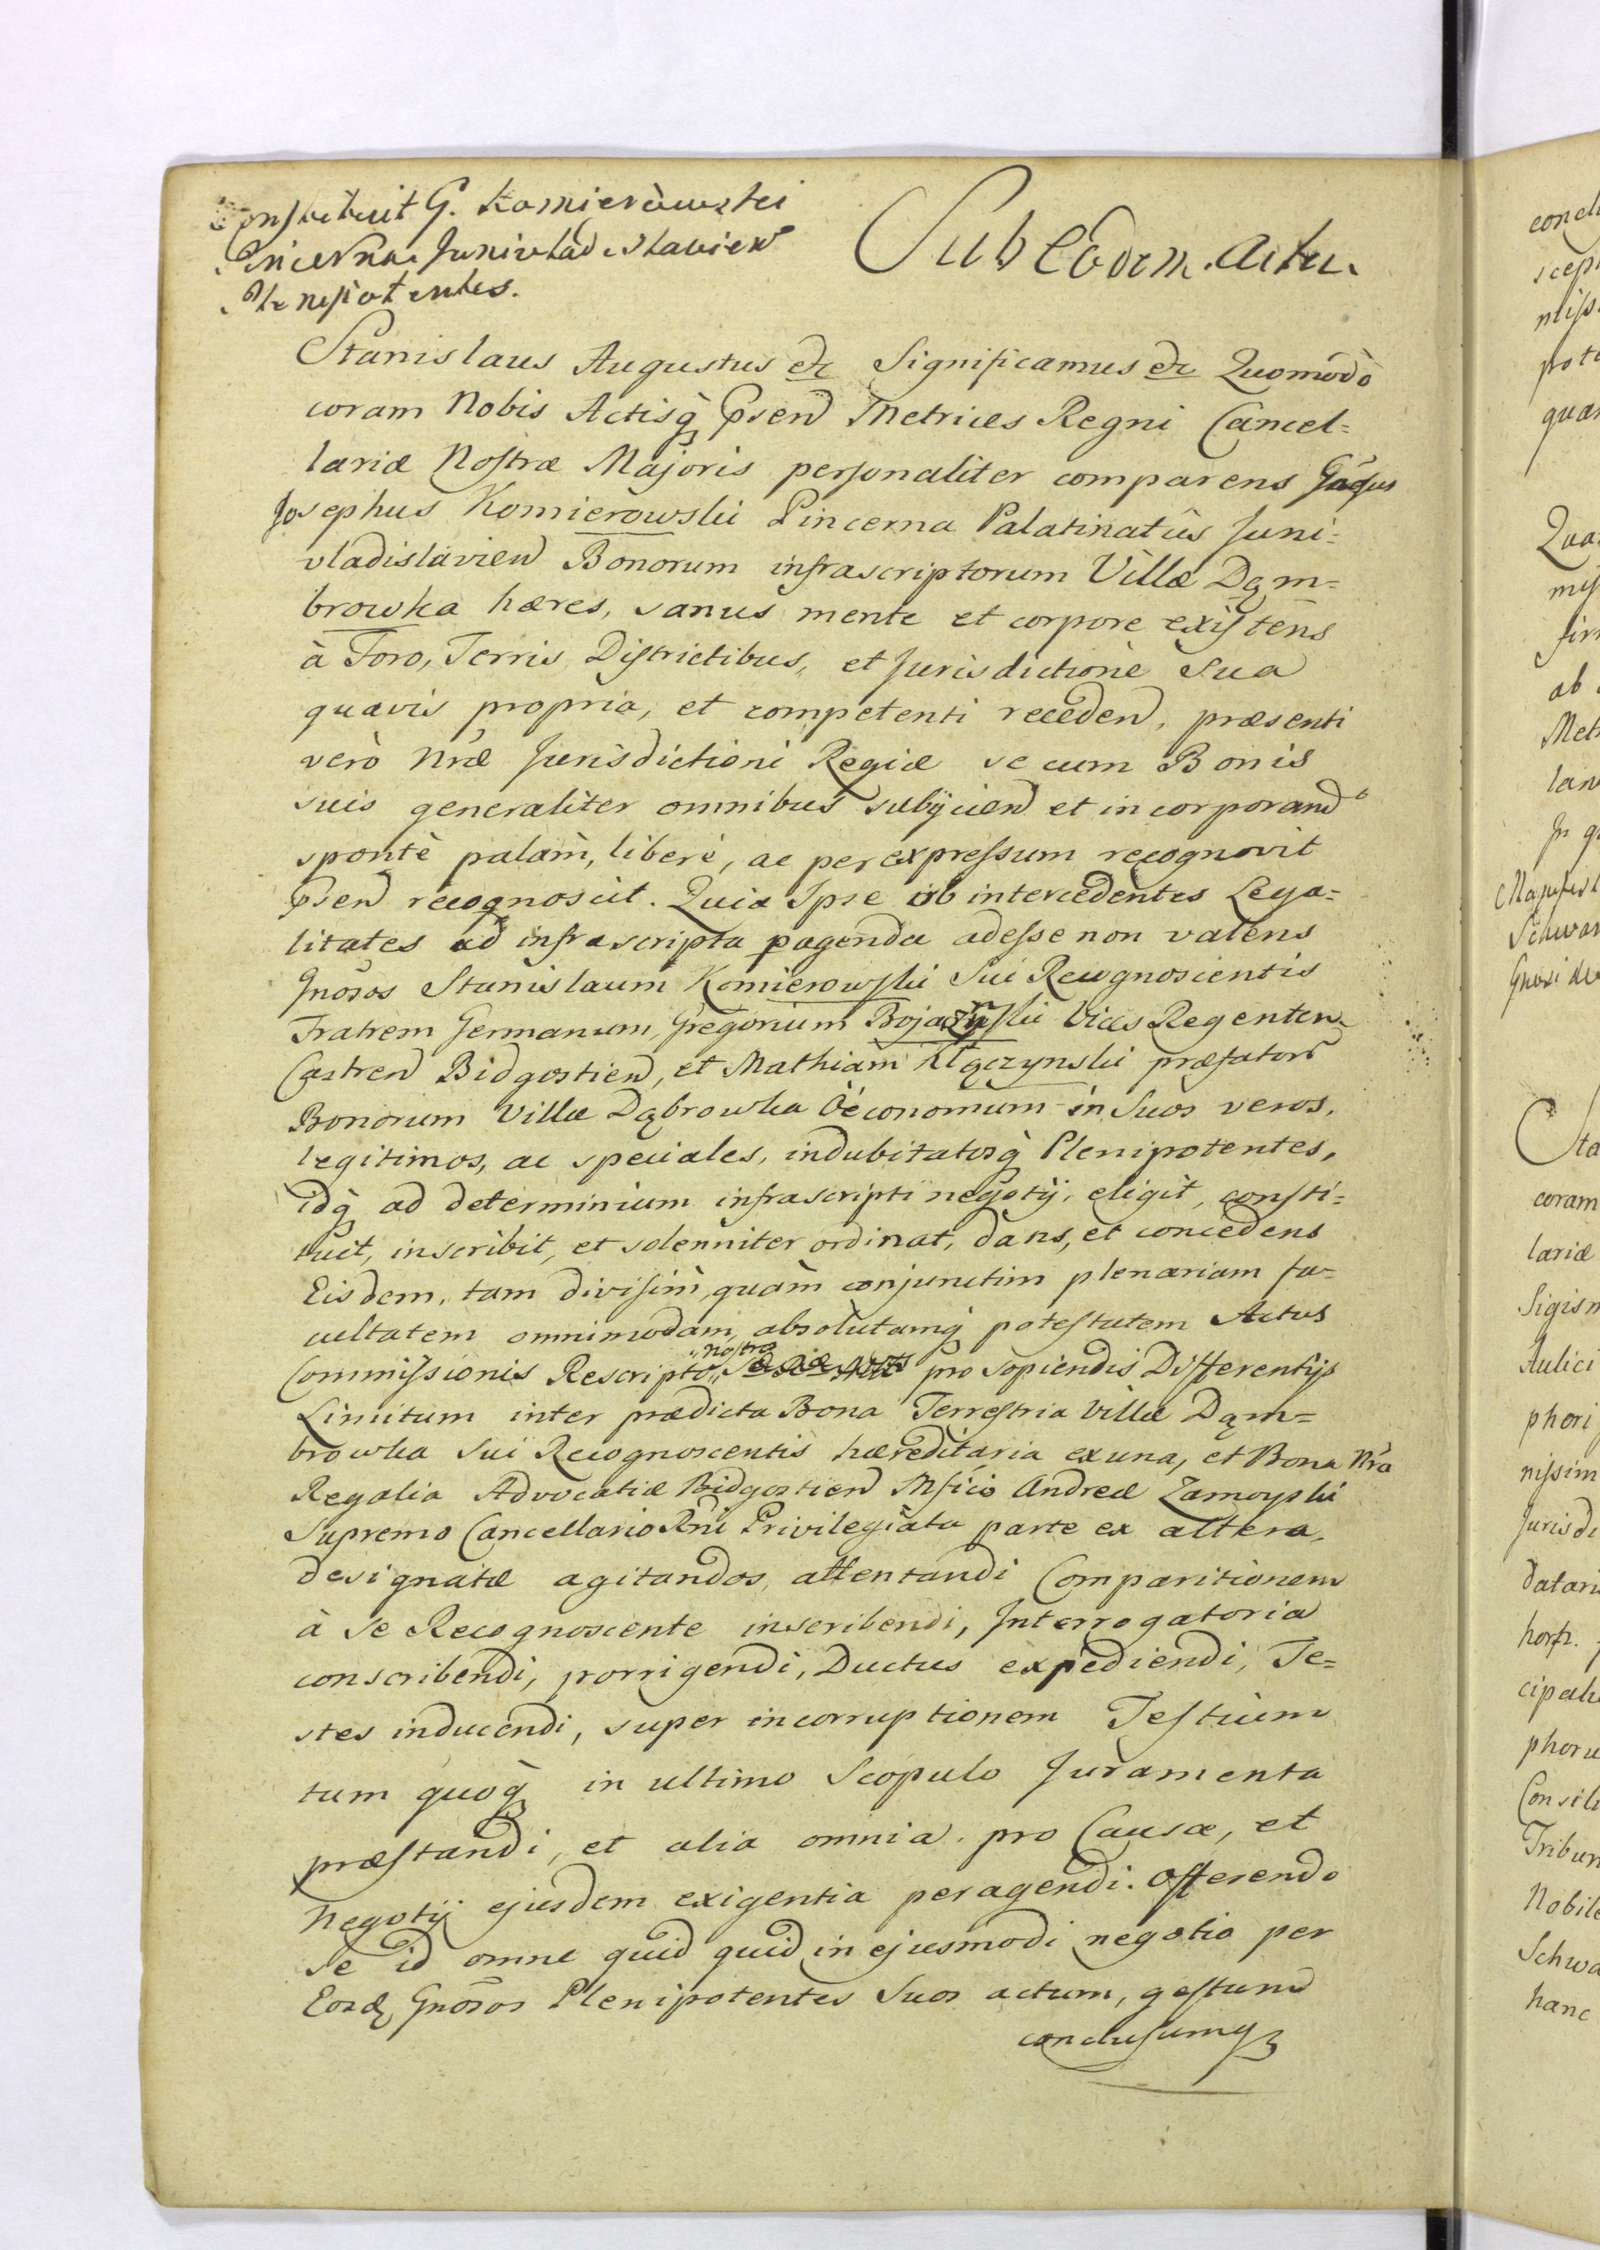 Constituit G. Komierowski
Pincerna Junivladislavien
Plenipotentes.
Sub Eodem Actu.
Stanislaus Augustus etc Significamus etc Quomodo
coram Nobis Actisq̀ꝫ Psen Metrices Regni Cancel=
lariæ Nostræ Majoris personaliter comparens Gñsus
Josephus Komierowski Pincerna Palatinatûs Juni=
vladislavien Bonorum infrascriptorum Villæ Dąm=
browka hæres, sanus mente et corpore existens
à Foro, Terris Districtibus, et Jurisdictione Sua
quavis propria, et competenti receden, præsenti
verò Nræ Jurisdictioni Regiæ se cum Bonis
suis generaliter omnibus subijcien et incorporand
spontè palàm, liberè, ac per expressum recognovit
Psen recognoscit. Quia Ipse ob intercedentes Lega=
litates ad infrascripta pagenda adesse non valens
Gnosos Stanislaum Komierowski Sui Recognoscentis
Fratrem Germanum, Gregorium Vices Regenten
Castren Bidgostien, et Mathiam præfator
Bonorum Villæ Dąbrowka Oeconomum in Suos veros,
legitimos, ac speciales, indubitatosq̀ꝫ Plenipotentes,
idq̀ꝫ ad determinium infrascripti negotij, eligit, consti=
tuit, inscribit, et solenniter ordinat, dans, et concedens
Eisdem, tam divisim, quàm conjunctim plenariam fa=
cultatem omnimodam, absolutamq̀ꝫ potestatem Actus
Commissionis Rescripto nostro pro sopiendis Differentijs
Limitum inter prædicta Bona Terrestria Villæ Dąm=
browka Sui Recognoscentis hæreditaria ex una, et Bona Nra
Regalia Advocatiæ Bidgostien Mfico Andreæ Zamoyski
Supremo Cancellario Rni Privilegiata parte ex altera,
designatæ agitandos, attentandi Comparitionem
à se Recognoscente inscribendi, Interrogatoria
conscribendi, porrigendi, Ductus expediendi, Te=
stes inducendi, super incorruptionem Testium
tum quoq̀ꝫ in ultimo Scopulo Juramenta
præstandi, et alia omnia pro Causæ, et
Negotij ejusdem exigentia peragendi. Offerendo
Se id omne quid quid in ejusmodi negotio per
Eosdꝫ Gnosos Plenipotentes Suos actum, gestum
conclusumqꝫ